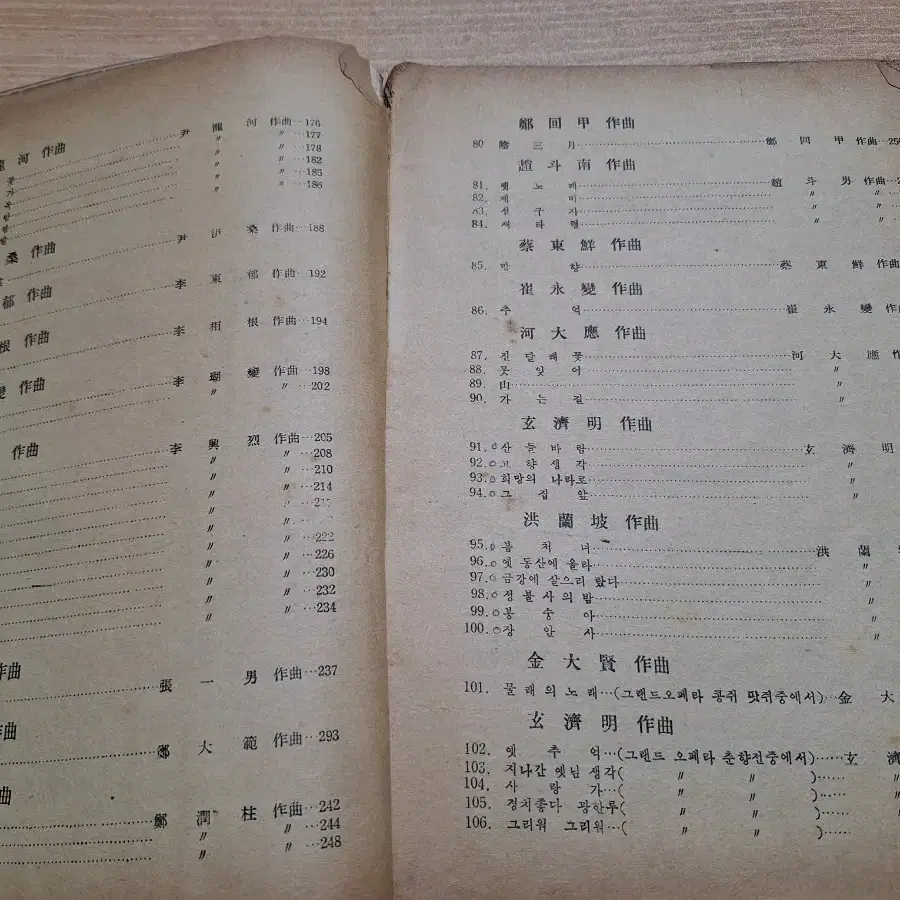 龍河 作曲
尹龍河 作曲…176
〃 〃…177
〃 〃…178
〃 〃…182
〃 〃…185
〃 〃…186
桑 作曲
尹伊桑 作曲…188
郁 作曲
李東郁 作曲…192
根 作曲
李相根 作曲…194
變 作曲
李瑚變 作曲…198
〃 〃…202
作曲
李興烈 作曲…205
〃 〃…208
〃 〃…210
〃 〃…214
〃 〃
〃 〃
〃 〃…222
〃 〃…226
〃 〃…230
〃 〃…232
〃 〃…234
作曲
張一男 作曲…237
作曲
鄭大範 作曲…293
曲
鄭潤柱 作曲…242
〃 〃…244
〃 〃…248
鄭回甲 作曲
80 陰三月 鄭回甲 作曲
趙斗南 作曲
81. 옛노래 趙斗男 作曲
82. 제비 〃 〃
83. 선구자 〃 〃
84. 새타령 〃 〃
蔡東鮮 作曲
85. 망향 蔡東鮮 作曲
崔永變 作曲
86. 추억 崔永變 作曲
河大應 作曲
87. 진달래꽃 河大應 作
88. 못잊어 〃
89. 山 〃
90. 가는길 〃
玄濟明 作曲
91.○산들바람 玄濟明
92.○고향생각 〃
93.○희망의 나라로 〃
94.○그집앞 〃
洪蘭坡 作曲
95.○봄처녀 洪蘭
96.○옛 동산에 올라 〃
97.○금강에 살으리 랐다 〃
98.○성불사의밤 〃
99.○봉숭아 〃
100.○장안사 〃
金大賢 作曲
101. 물레의노래…(그랜드오페타 콩쥐 팟쥐중에서)…金大
玄濟明 作曲
102. 옛추억…(그랜드 오페타 춘향전중에서)……玄濟
103. 지나간 옛님 생각( 〃 〃 )…… 〃
104. 사랑가…( 〃 〃 )…… 〃
105. 경치좋다 광한루( 〃 〃 )…… 〃
106. 그리워 그리워…( 〃 〃 )…… 〃